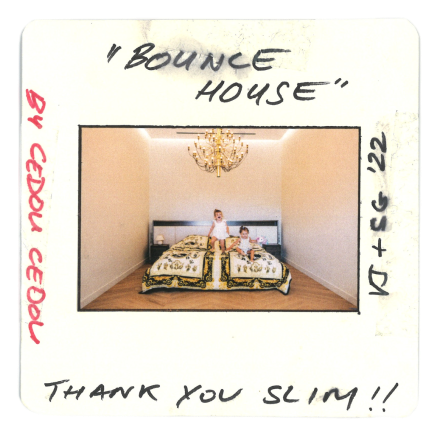 "BOUNCE
HOUSE"
BY CEDOU CEDOU
VJ + SG '22
THANK YOU SLIM!!